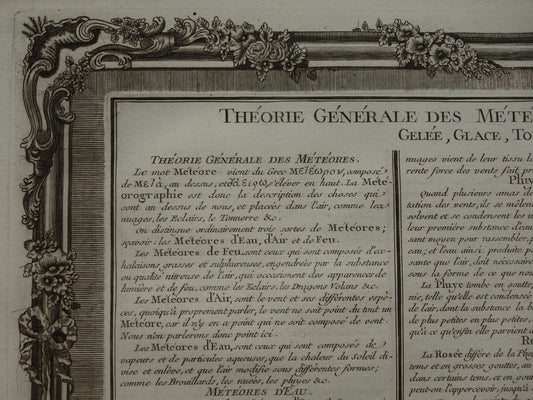 THÉORIE GÉNÉRALE DES MÉTÉ
GELÉE, GLACE, TO
THÉORIE GÉNÉRALE DES MÉTÉORES.
Le mot Météore vient du Grec Μετέωρον, composé
de Μετὰ, au dessus, et ἀείρω, s'élever en haut. La Meté-
orographie est donc la description des choses qui
sont au dessus de nous, et placées dans l'air, comme les
nuages, les Eclairs, le Tonnerre &c.
On distingue ordinairement trois sortes de Météores;
sçavoir: les Météores d'Eau, d'Air et de Feu.
Les Météores de Feu sont ceux qui sont composés d'ex-
halaisons grasses et sulphureuses, engendrées par la substance
ou qualité nitreuse de l'air, qui occasionnent des apparences de
lumière et de feu, comme les Eclairs, les Dragons Volans &c.
Les Météores d'Air, sont le vent et ses différentes espé-
ces, quoiqu'à proprement parler, le vent ne soit point du tout un
Météore, car il n'y en a point qui ne soit composé de vent.
Nous n'en parlerons donc point ici.
Les Météores d'Eau, sont ceux qui sont composés de
vapeurs et de particules aqueuses, que la chaleur du Soleil di-
vise et enlève, et que l'air modifie sous différentes formes;
comme les Brouillards, les nuées, les pluyes &c.
MÉTÉORES D'EAU.
nuages vient de leur tissu l
rente force des vents fait pr
Pluy
Quand plusieurs amas de
tation des vents, ils se mêlen
solvent et se condensent les u
leur première substance d'eau
sant moyen pour rassembler, p
eau, et l'eau ainsi produite p
sante que l'air, doit nécessaire
sous la forme de ce que nou
La Pluye tombe en goutte,
nie, telle qu'elle est condensée
de l'air, dont la substance la b
de plus petites en plus petites,
qu'à ce qu'enfin elle parvient à
Ro
La Rosée diffère de la Plu
tems et en grosses gouttes, au
dans certains tems, et en gou
peut-on l'appercevoir, jusqu'à